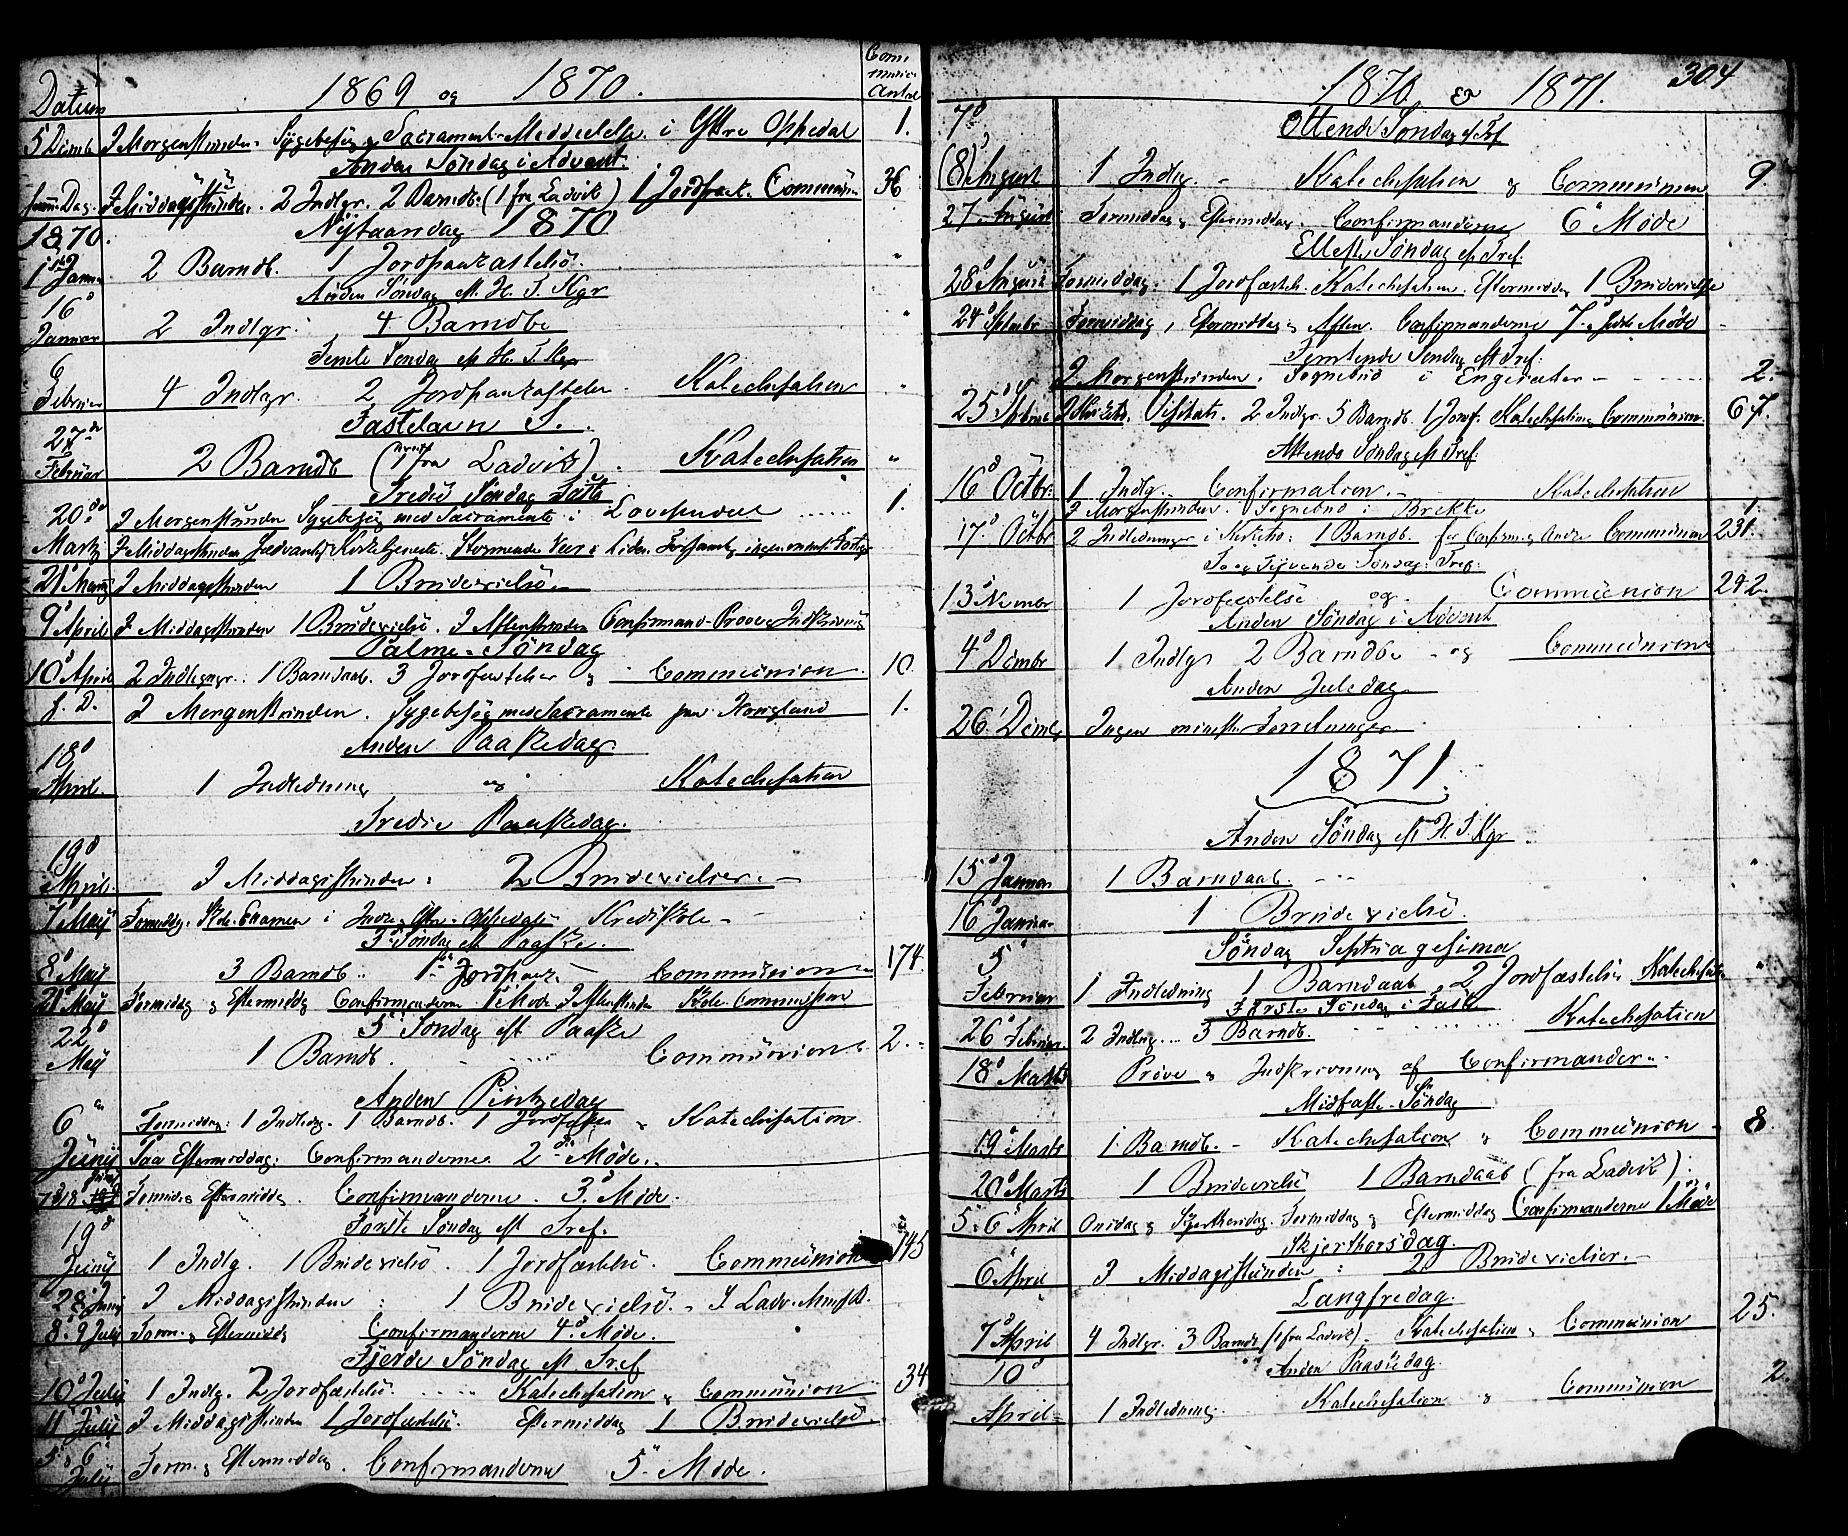 Datum 1869 og 1870. Communic Antal
5 Decmbr I Morgenstunden. Sygebesøg og Sacrament-Meddelelse i Yttre Oppedal 1.
Anden Søndag i Advent.
samme Dag. I Middagsstunden. 2 Indlgr. 2 Barndb. (1 fra Ladvik) 1 Jordfæst. Communion 36
1870. Nytaarsdag 1870
1ste Januar 2 Barndb. 1 Jordpaakastelse "
Anden Søndag eft. H. 3. Kgr
16de Januar 2 Indlgr. 4 Barndbe "
Femte Søndag eft H. 3. Kgr
6 Februar 4 Indlgr. 2 Jordpaakastelser. Katechisation "
Fastelavn S.
27de Februar 2 Barndb (1 fra Ladvik). Katechisation "
Tredie Søndag Faste
20de I Morgenstunden Sygebesøg med Sacramente i 1.
Marts I Middagsstunden Kirketjeneste. Stormende Veir
21 Marts I Middagsstunden 1 Brudevielse
9 April I Middagsstunden 1 Brudevielse. I Aftenstunden Confirmand-Prøve Indskrivning
Palme-Søndag
10 April 2 Indlgngr. 1 Barndaab. 3 Jordfæstelser og Communion 10.
s. D. I Morgenstunden. Sygebesøg med Sacramente paa 1.
Anden Paaskedag.
18 April 1 Indledning og Katechisation
Tredie Paaskedag.
19 April I Middagsstunden: 2 Brudevielser.
7 May Formiddg. Skole-Examen i Indre og Yttre Oppedals Kredsskole
3 Søndag eft Paaske.
8 May 3 Barndb. 1 Jordpaak. Communion 174.
21 May Formiddag og Eftermiddg Confirmanderne 1 Møde I Aftenstunden Skole Commission
5 Søndag eft Paaske
22 May 1 Barndb. Communion 2.
Anden Pintzedag
6 Formiddag: 1 Indledg. 1 Barndb. 1 Jordfæstelse Katechisation
Juny Paa Eftermiddag: Confirmanderne 2 Møde.
Formid. og Eftermiddg. Confirmanderne. 3 Møde.
Første Søndag eft Tref.
19 Juny 1 Indlg. 1 Brudevielse. 1 Jordfæstelse. Communion 145
28 Juny I Middagsstunden: 1 Brudevielse.
8 og 9 July Form. og Eftermiddg Confirmanderne 4 Møde.
Fjerde Søndag eft Tref
10 July 1 Indlg. 2 Jordfæstelse. Katechisation og Communion 34
11 July I Middagsstunden 1 Jordfæstelse. Eftermiddag 1 Brudevielse
5 og 6 July Form. og Eftermiddag. Confirmanderne 5 Møde.
304
1870 og 1871.
7 Ottende Søndag eft Tref
(8) August 1 Indlg. Katechisation og Communion 9.
27 August Formiddag og Eftermiddag. Confirmanderne 6 Møde
Ellefte Søndag eft Tref.
28 August Formiddag. 1 Jordfæstelse. Katechisation. Eftermiddag 1 Brudevielse
24 Septmbr Formiddag, Eftermiddag og Aften. Confirmanderne 7 sidste Møde
Femtende Søndag eft Tref.
I Morgenstunden. Sognebud i Engesæter 2.
25 Sptmbr I Kirken. Visitats. 2 Indlgr. 5 Barndb. 1 Jordf. Katechisation og Communion. 67.
Attende Søndag eft Tref.
16 Octbr. 1 Indlg. Confirmation. Katechisation
I Morgenstunden. Sognebud i Brekke 1.
17 Octbr 2 Indledninger i Kirken: 1 Barndb. for Confirm. og Andre Communion 231.
Toogtyvende Søndag Tref.
13 Novmbr 1 Jordfæstelse og Communion 242.
Anden Søndag i Advent
4 Dcmbr 1 Indlgr 2 Barndbe og Communion
Anden Juledag
26 Dcmbr Ingen minist. Forretninger.
1871.
Anden Søndag eft H. 3. Kgr.
15 Januar 1 Barndaab. "
16 Januar 1 Brudevielse.
Søndag Septuagesima
5 Februar 1 Indledning 1 Barndaab, 2 Jordfæstelse Katechisation "
Første Søndag i Faste
26 Februar. 2 Indlg. 3 Barndb. Katechisation
18 Marts Prøve og Indskrivning af Confirmander.
Midfaste-Søndag
19 Marts 1 Barndb. Katechisation og Communion 8.
20 Marts 1 Brudevielse 1 Barndaab (fra Ladvik).
5 og 6 April Onsdag og Skjærthorsdag. Formiddag og Eftermiddag Confirmanderne 1 Møde
Skjerthorsdag.
6 April I Middagsstunden: 2 Brudevielser.
Langfredag.
7 April 4 Indlgr. 3 Barndb (1 fra Ladvik). Katechisation og Communion 25.
10 Anden Paaskedag.
April 1 Indledning. Katechisation og Communion 2